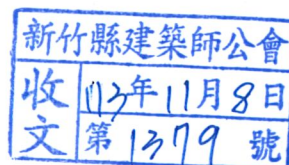 新竹縣建築師公會
收文 113年11月8日
第1379號